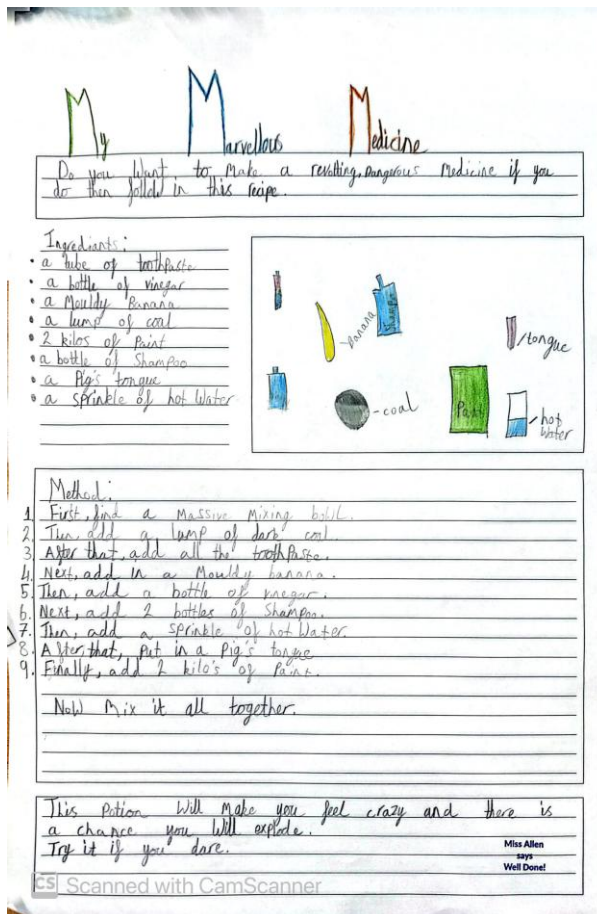 My Marvellous Medicine
Do you want to make a revolting, Dangerous medicine if you
do then follow in this recipe.
Ingrediants:
• a tube of toothpaste
• a bottle of vinegar
• a Mouldy Banana
• a lump of coal
• 2 kilos of Paint
• a bottle of Shampoo
• a Pig's tongue
• a sprinkle of hot Water
banana
Shampoo
tongue
coal
Paint
hot
Water
Method:
1. First, find a Massive Mixing bowl.
2. Then, add a lump of dark coal.
3. After that, add all the toothPaste.
4. Next, add in a Mouldy banana.
5. Then, add a bottle of vinegar.
6. Next, add 2 bottles of Shampoo.
7. Then, add a sprinkle of hot Water.
8. After, that, put in a Pig's tongue
9. Finally, add 2 kilo's of Paint.
Now Mix it all together.
This Potion Will Make you feel crazy and there is
a chance you Will explode.
Try it if you dare.
Miss Allen
says
Well Done!
CS Scanned with CamScanner